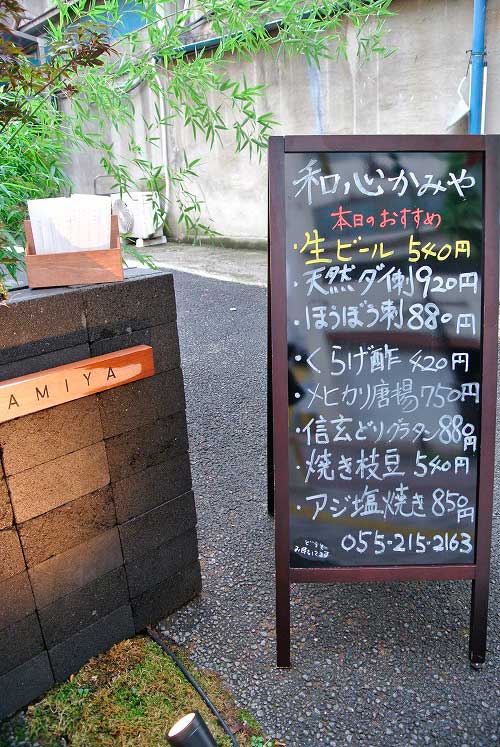 和心かみや
本日のおすすめ
・生ビール 540円
・天然ダイ刺920円
・ほうぼう刺880円
・くらげ酢 420円
・メヒカリ唐揚750円
・信玄どりグラタン880円
・焼き枝豆 540円
・アジ塩焼き850円
055-215-2163
AMIYA